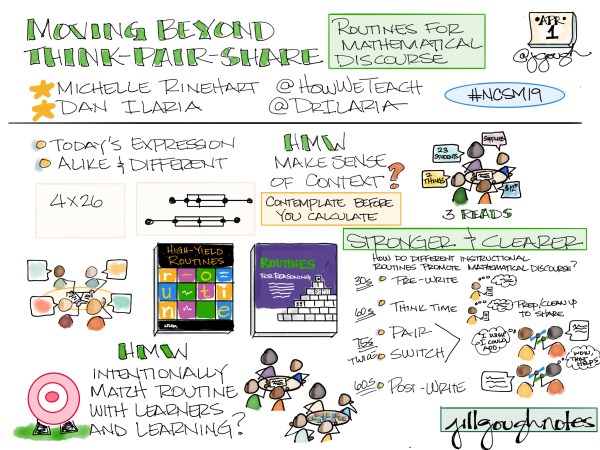 MOVING BEYOND
THINK-PAIR-SHARE
ROUTINES FOR
MATHEMATICAL
DISCOURSE
APR
1
@jgough
MICHELLE RINEHART @HOWWETEACH
DAN ILARIA @DRILARIA
#NCSM19
TODAY'S EXPRESSION
ALIKE & DIFFERENT
4 x 26
HMW
MAKE SENSE
OF CONTEXT?
CONTEMPLATE BEFORE
YOU CALCULATE
23
STUDENTS
SUPPLIES
2
THINGS
3 READS
HIGH-YIELD
ROUTINES
r o
u t i
n e
ROUTINES
FOR REASONING
STRONGER & CLEARER
HOW DO DIFFERENT INSTRUCTIONAL
ROUTINES PROMOTE MATHEMATICAL DISCOURSE?
30s PRE-WRITE
60s THINK TIME
PREP/CLEAN UP
TO SHARE
75s PAIR
TWICE SWITCH
I WISH
I COULD
ADD
WOW,
THAT
HELPS
60s POST-WRITE
HMW
INTENTIONALLY
MATCH ROUTINE
WITH LEARNERS
AND LEARNING?
jillgoughnotes